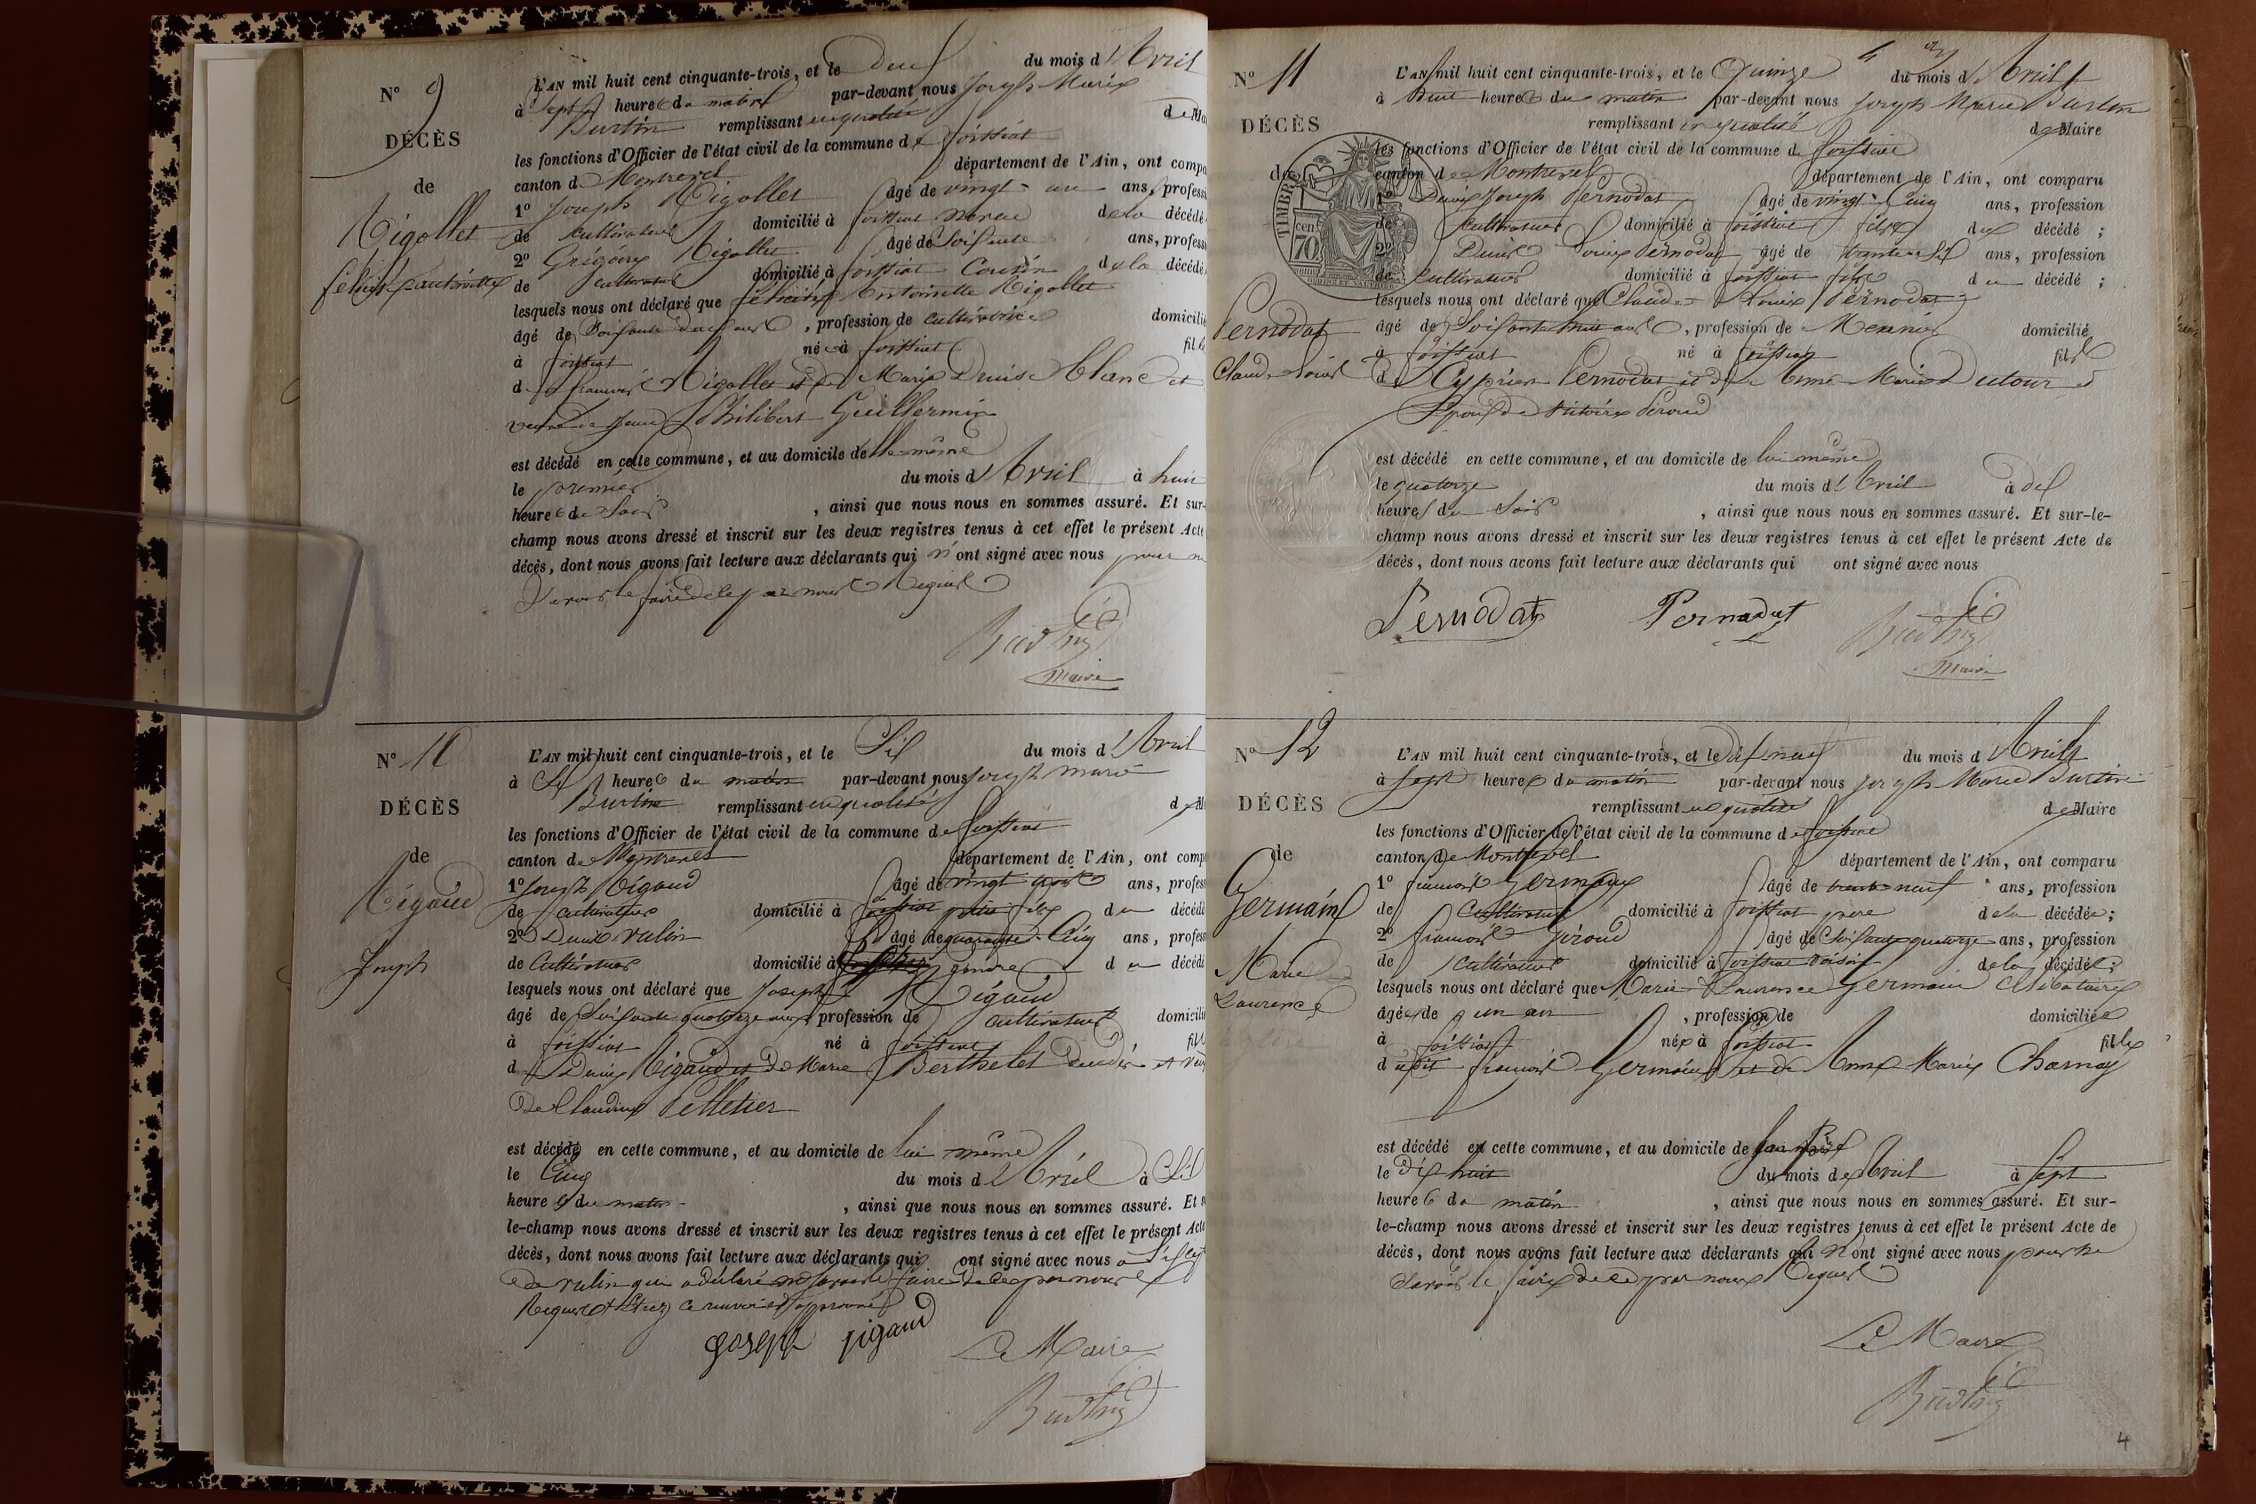 N° 9
DÉCÈS
de
Rigollet
L'AN mil huit cent cinquante-trois, et le Deux du mois d'Avril
à sept heures du matin par-devant nous Joseph Marie
Burtin remplissant en qualité de
les fonctions d'Officier de l'état civil de la commune de foissiat
canton de Montrevel département de l'Ain, ont compa
1° Joseph Rigollet âgé de vingt-un ans, profess
de cultivateur domicilié à foissiat neveu de la décédé
2° Grégoire Rigollet âgé de Soixante ans, profess
de cultivateur domicilié à foissiat Cousin de la décédé
lesquels nous ont déclaré que félicité Antoinette Rigollet
âgé de Soixante ans, profession de cultivatrice domicilié
à foissiat né à foissiat fille
de françois Rigollet et de Marie Denise Blanc et
veuve de Philibert Guillermin
est décédé en cette commune, et au domicile de elle même
le premier du mois d'Avril à huit
heures du Soir, ainsi que nous nous en sommes assuré. Et sur-
champ nous avons dressé et inscrit sur les deux registres tenus à cet effet le présent Acte
décès, dont nous avons fait lecture aux déclarants qui n'ont signé avec nous pour ne
Savoir le faire de ce par nous Requis
Burtin
Maire
N° 10
DÉCÈS
de
Rigaud
Joseph
L'AN mil huit cent cinquante-trois, et le Six du mois d'Avril
à Six heures du matin par-devant nous Joseph Marie
Burtin remplissant en qualité
les fonctions d'Officier de l'état civil de la commune de foissiat
canton de Montrevel département de l'Ain, ont comp
1° Joseph Rigaud âgé de vingt trois ans, profess
de cultivateur domicilié à foissiat fils du décédé
2° Denis Vulin âgé de quarante-Cinq ans, profess
de Cultivateur domicilié à gendre du décédé
lesquels nous ont déclaré que Joseph Rigaud
âgé de Soixante quatorze ans profession de cultivateur domicilié
à foissiat né à foissiat fils
de Denis Rigaud et de Marie Berthelet et veuf
De Claudine Pelletier
est décédé en cette commune, et au domicile de lui même
le Cinq du mois d'Avril à Six
heures du matin, ainsi que nous nous en sommes assuré. Et s
le-champ nous avons dressé et inscrit sur les deux registres tenus à cet effet le présent Acte
décès, dont nous avons fait lecture aux déclarants qui ont signé avec nous
vulin qui a déclaré ne savoir le faire de ce par nous
Requis
joseph rigaud
Le Maire
Burtin
N° 11
DÉCÈS
du
Pernodat
Claude Louis
TIMBRE
cen
70
L'AN mil huit cent cinquante-trois, et le Quinze du mois d'Avril
à huit heures du matin par-devant nous Joseph Marie Burtin
remplissant en qualité de Maire
les fonctions d'Officier de l'état civil de la commune de foissiat
canton de Montrevel département de l'Ain, ont comparu
1° Denis Joseph Pernodat âgé de vingt-Cinq ans, profession
de cultivateur domicilié à foissiat fils du décédé ;
2° Denis Louis Pernodat âgé de trente-Six ans, profession
de Cultivateur domicilié à foissiat fils du décédé ;
lesquels nous ont déclaré que Claude Louis Pernodat
âgé de Soixante huit ans, profession de Meunier domicilié
à foissiat né à foissiat fils
de Cyprien Pernodat et de Anne-Marie Dutour
Epoux de Victoire Péroud
est décédé en cette commune, et au domicile de lui même
le quatorze du mois d'Avril à dix
heures du Soir, ainsi que nous nous en sommes assuré. Et sur-le-
champ nous avons dressé et inscrit sur les deux registres tenus à cet effet le présent Acte de
décès, dont nous avons fait lecture aux déclarants qui ont signé avec nous
Pernodat Pernodat Burtin
Maire
N° 12
DÉCÈS
de
Germain
Marie
Laurence
L'AN mil huit cent cinquante-trois, et le dix neuf du mois d'Avril
à sept heures du matin par-devant nous Joseph Marie Burtin
remplissant en qualité de Maire
les fonctions d'Officier de l'état civil de la commune de foissiat
canton de Montrevel département de l'Ain, ont comparu
1° françois Germain âgé de trente neuf ans, profession
de Cultivateur domicilié à foissiat père de la décédée ;
2° françois Péroud âgé de Soixante quatorze ans, profession
de cultivateur domicilié à foissiat Voisin de la décédée ;
lesquels nous ont déclaré que Marie Laurence Germain Célibataire
âgée de un an, profession de domiciliée
à foissiat née à foissiat fille
dudit françois Germain et de Anne-Marie Charnay
est décédé en cette commune, et au domicile de Son Père
le Dix huit du mois d'Avril à sept
heures du matin, ainsi que nous nous en sommes assuré. Et sur-
le-champ nous avons dressé et inscrit sur les deux registres tenus à cet effet le présent Acte de
décès, dont nous avons fait lecture aux déclarants qui n'ont signé avec nous pour ne
Savoir le faire de ce par nous Requis
Le Maire
Burtin
4